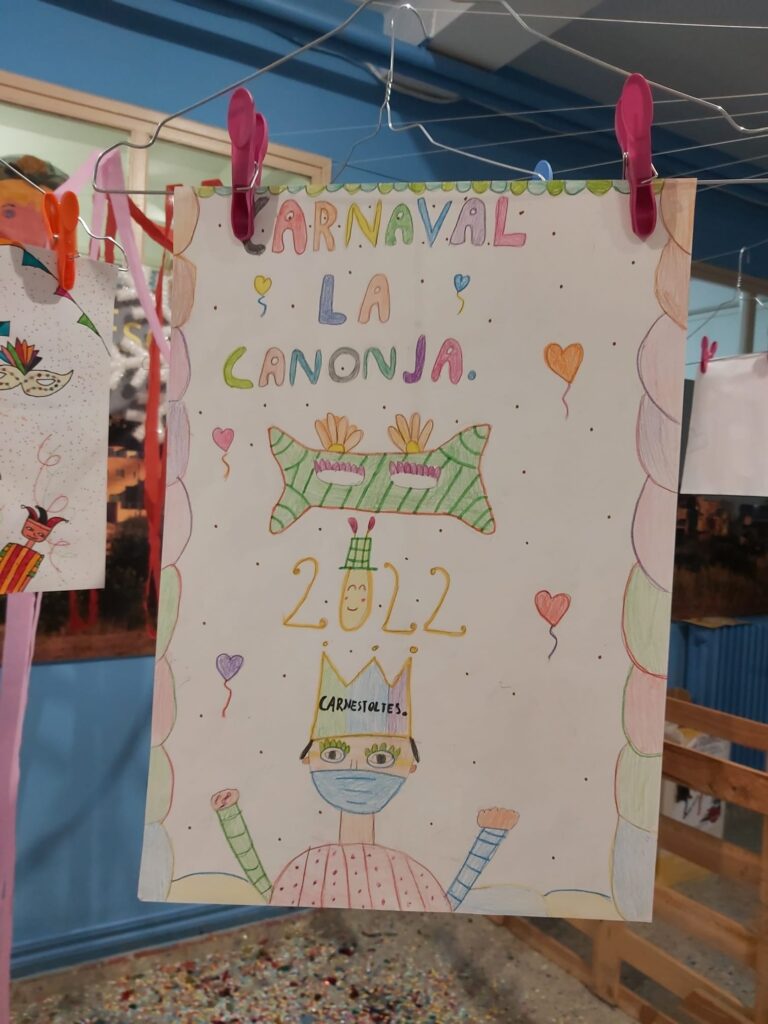 CARNAVAL
LA
CANONJA.
2022
CARNESTOLTES.